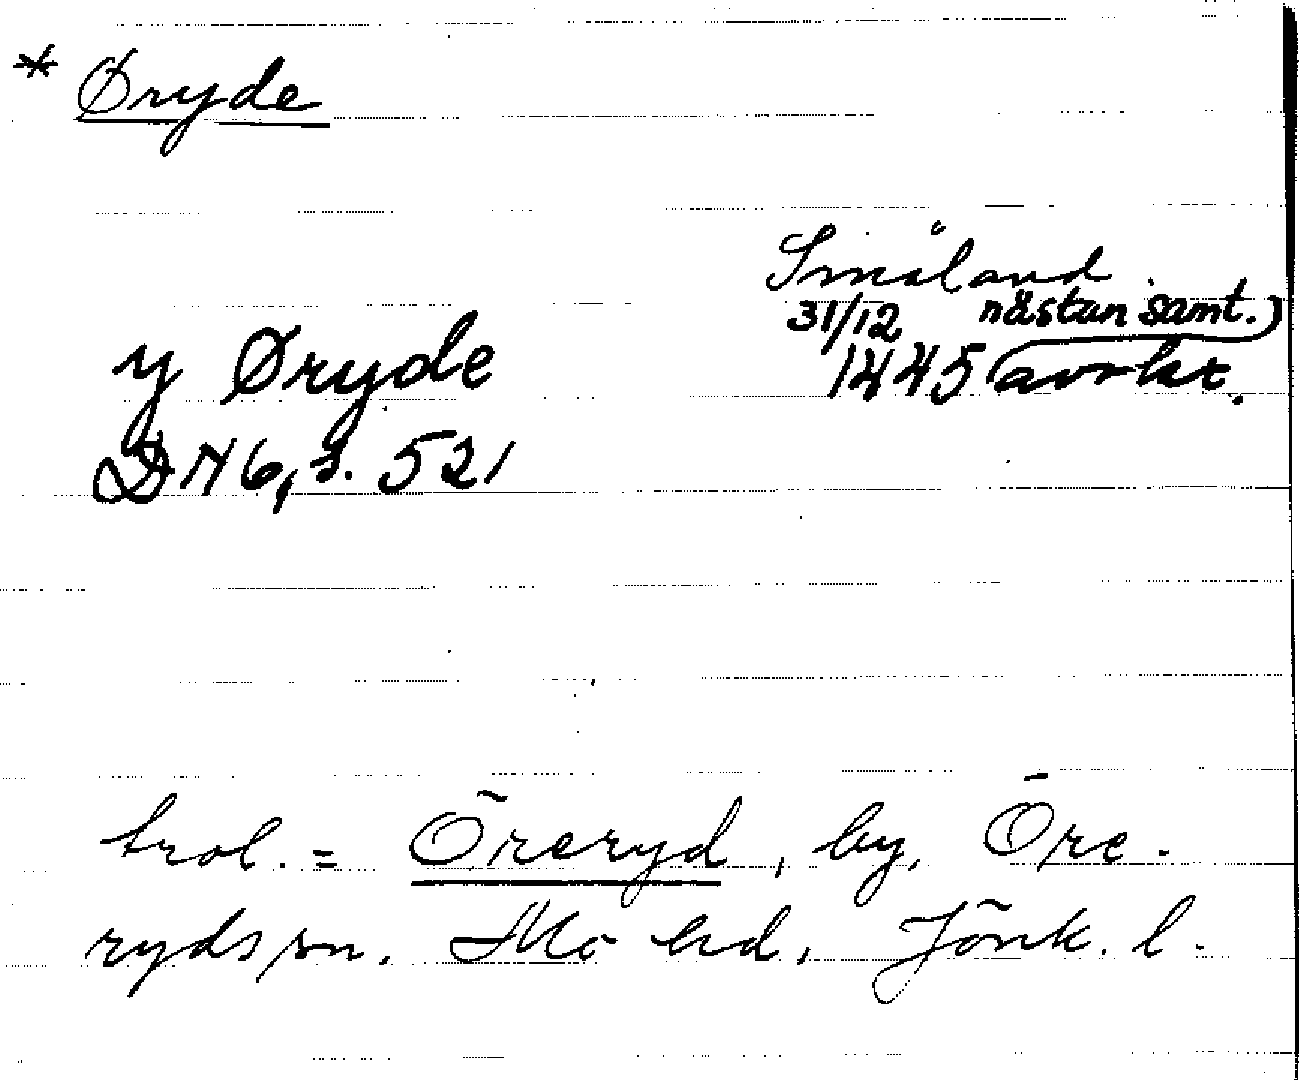 * Øryde
Småland
31/12 nästan samt.)
y Øryde 1445 (avskr.
DN 6, s. 521
trol. = Öreryd, by, Öre-
ryds sn. Mo hd, Jönk. l.